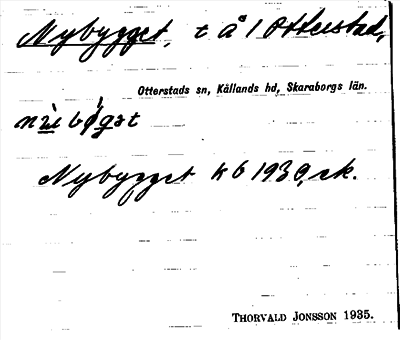 Nybygget, t å 1 Otterstad,
Otterstads sn, Kållands hd, Skaraborgs län.
Nybygget kb 1930, ek.
THORVALD JONSSON 1935.